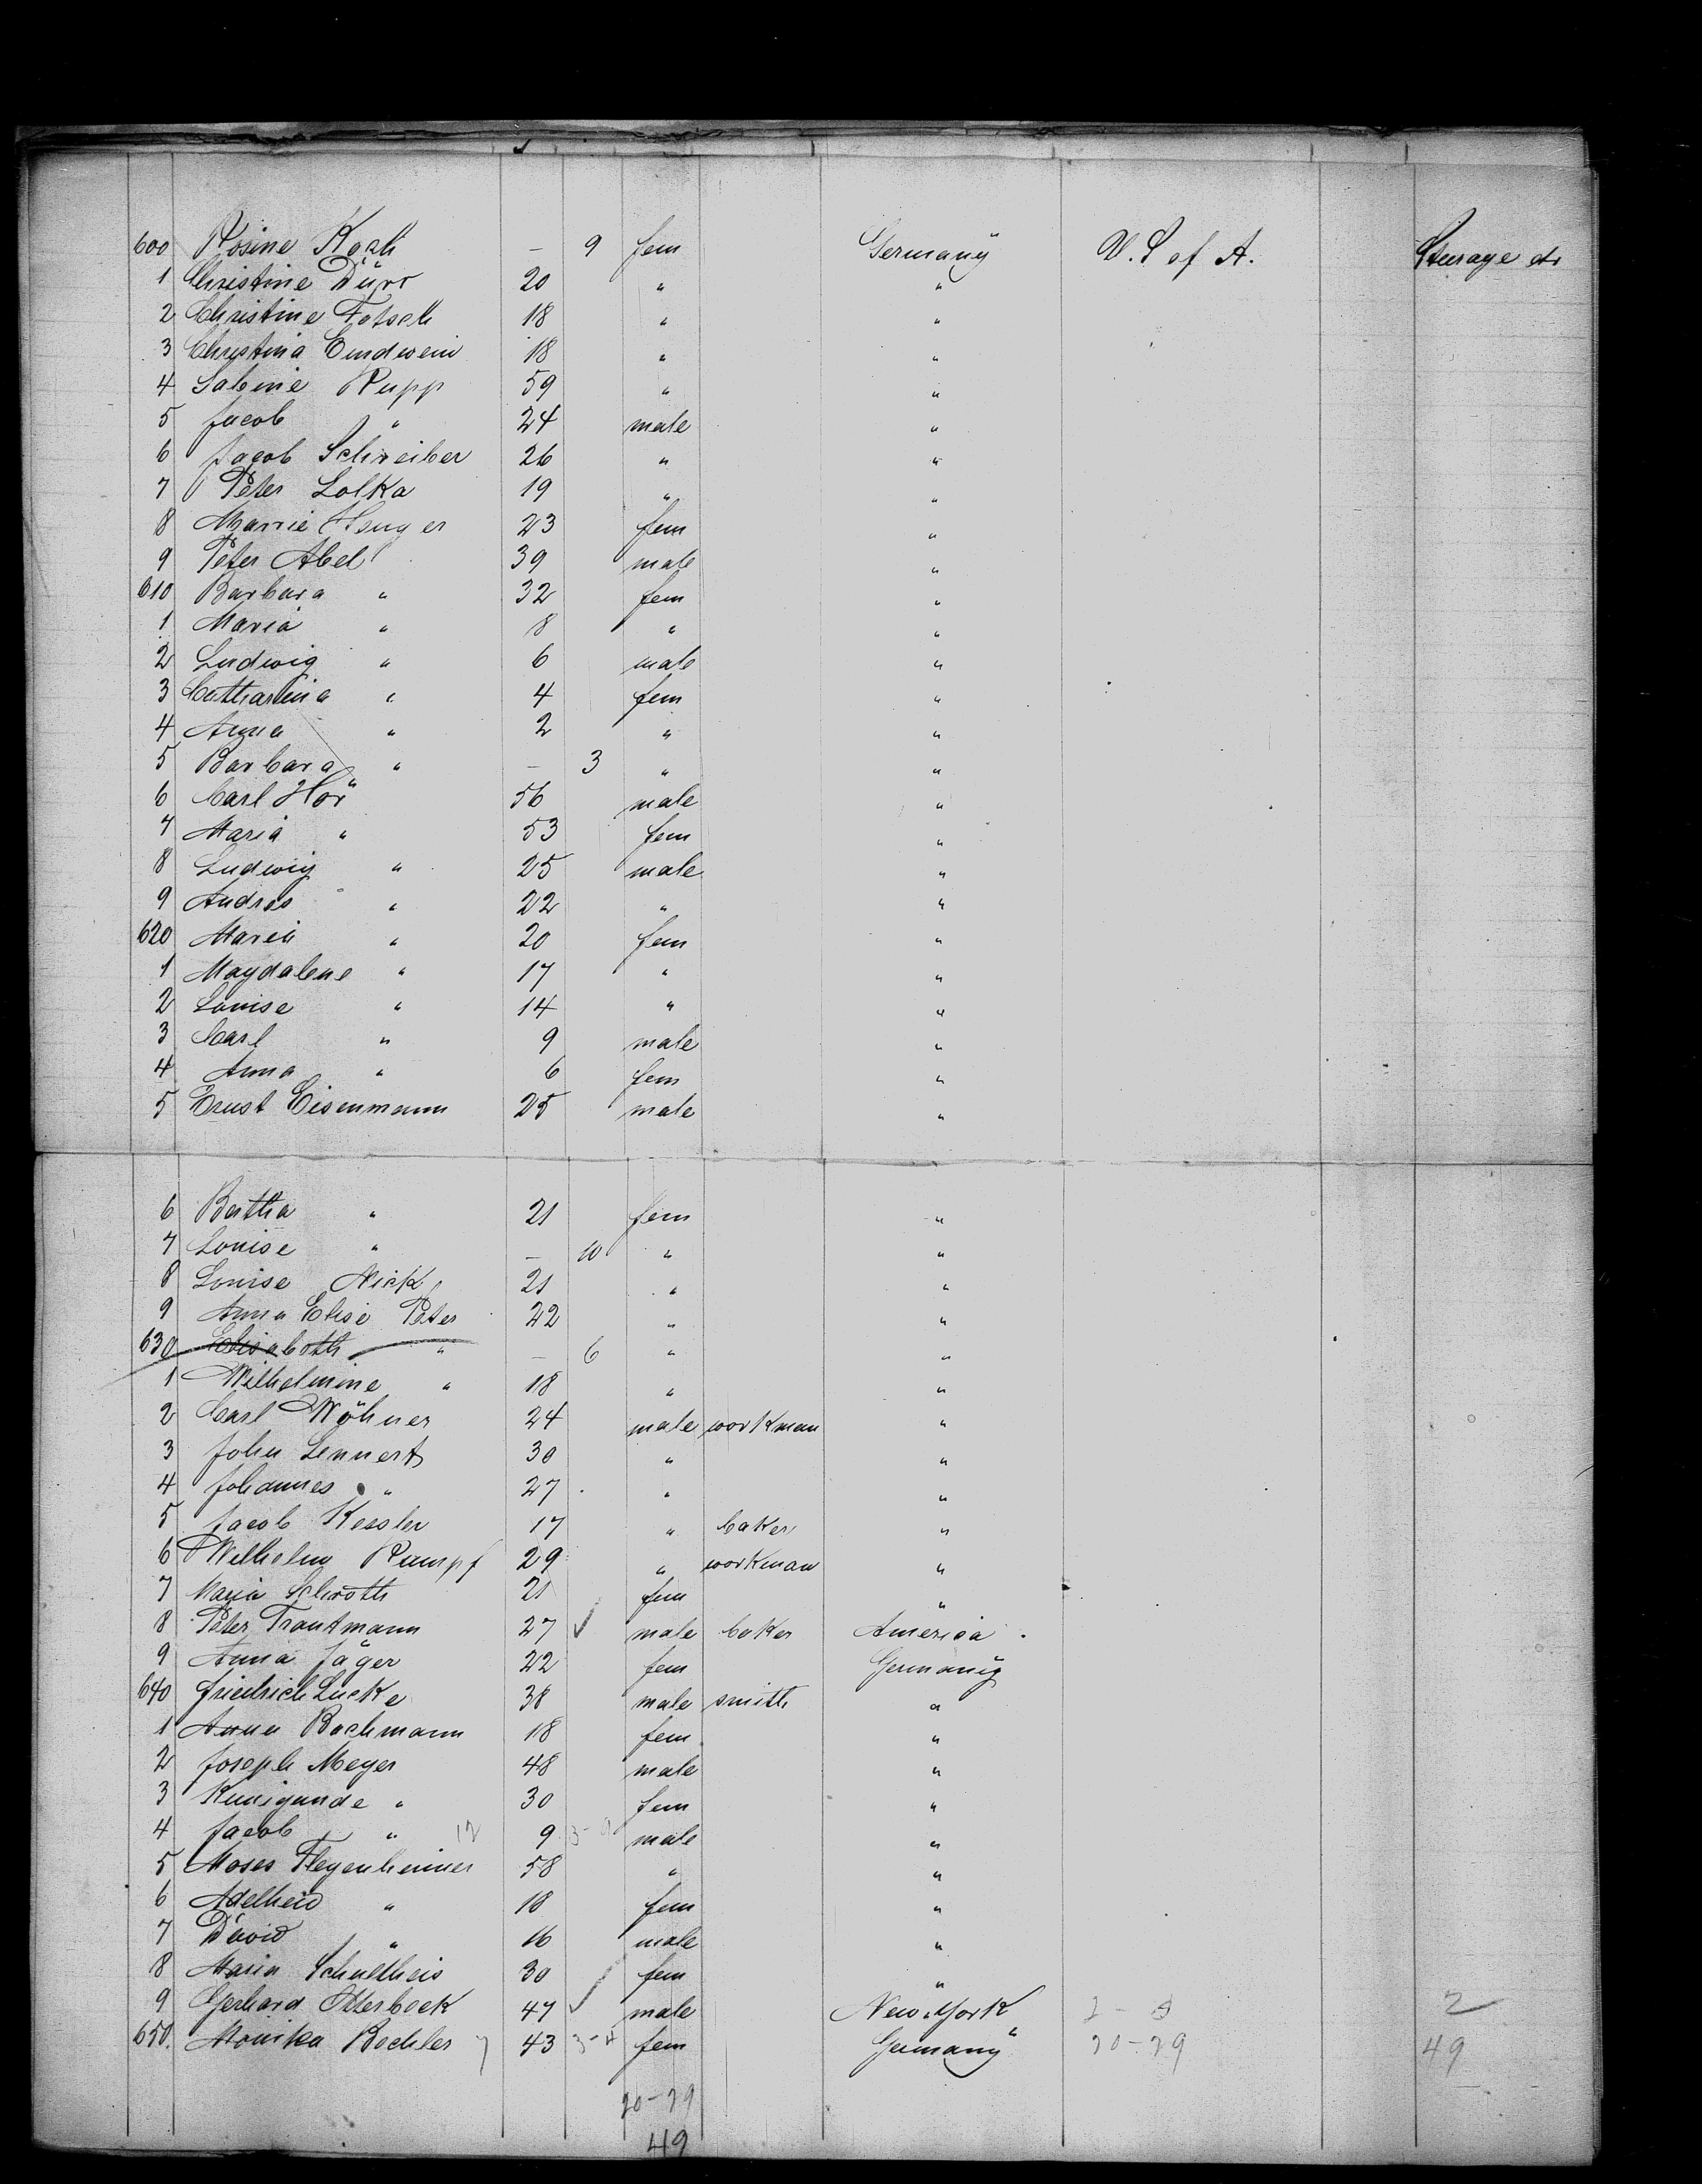 600 Rosine Koch — 9 fem Germany U. S of A. Sterage etc
1 Christine Dürr 20 " "
2 Christine Fotsch 18 " "
3 Christina Emdwein 18 " "
4 Sabine Rupp 59 " "
5 Jacob " 24 male "
6 Jacob Schreiber 26 " "
7 Peter Lolka 19 " "
8 Marrie 23 fem "
9 Peter Abel 39 male "
610 Barbara " 32 fem "
1 Maria " 8 " "
2 Ludwig " 6 male "
3 Catharina " 4 fem "
4 Anna " 2 " "
5 Barbara " — 3 " "
6 Carl Hör 56 male "
7 Maria " 53 fem "
8 Ludwig " 25 male "
9 Andres " 22 " "
620 Maria " 20 fem "
1 Magdalene " 17 " "
2 Louise " 14 " "
3 Carl " 9 male "
4 Anna " 6 fem "
5 Ernst Eisenmann 25 male "
6 Bertha " 21 fem "
7 Louise " — 10 " "
8 Louise Nick 21 " "
9 Anna Elise Peter 22 " "
630 Elisabeth " — 6 " "
1 Wilhelmine " 18 " "
2 Carl Wöhner 24 male workman "
3 John Lennert 30 " "
4 Johannes " 27 " "
5 Jacob Kessler 17 " baker "
6 Wilhelm Rumpf 29 " workman "
7 Maria Schroth 21 fem "
8 Peter Trautmann 27 ✓ male baker America
9 Anna Jäger 22 fem Germany
640 Friedrich Lucke 38 male smith "
1 Anna Bachmann 18 fem "
2 Joseph Meyer 48 male "
3 Kunigunde " 30 fem "
4 Jacob " 12 9 male "
5 Moses Flegenheimer 58 " "
6 Adelheid " 18 fem "
7 David " 16 male "
8 Maria Schultheis 30 fem "
9 Gerhard Otterbeck 47 ✓ male New York 2
650. Monika Bechler 7 43 3-4 fem Germany 20-29 49
20-29
49